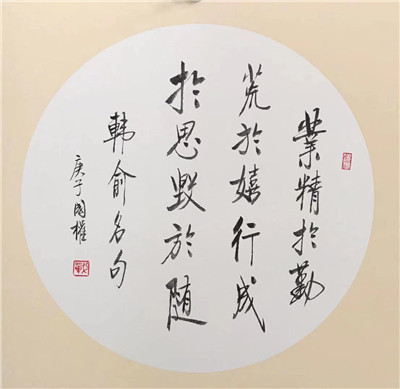 業精於勤
荒於嬉行成
於思毁於随
韩俞名句
庚子國權